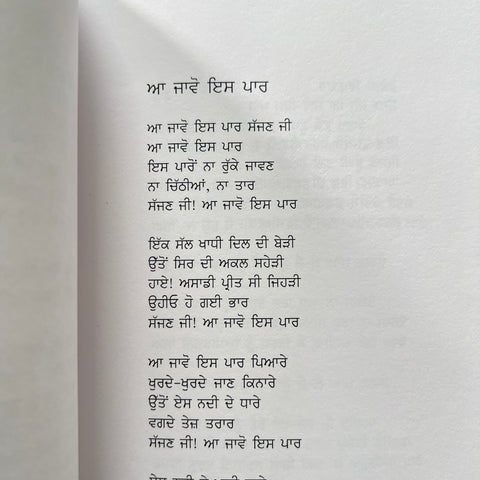 ਆ ਜਾਵੋ ਇਸ ਪਾਰ
ਆ ਜਾਵੋ ਇਸ ਪਾਰ ਸੱਜਣ ਜੀ
ਆ ਜਾਵੋ ਇਸ ਪਾਰ
ਇਸ ਪਾਰੋਂ ਨਾ ਰੁੱਕੇ ਜਾਵਣ
ਨਾ ਚਿੱਠੀਆਂ, ਨਾ ਤਾਰ
ਸੱਜਣ ਜੀ! ਆ ਜਾਵੋ ਇਸ ਪਾਰ
ਇੱਕ ਸੱਲ ਖਾਧੀ ਦਿਲ ਦੀ ਬੇੜੀ
ਉੱਤੋਂ ਸਿਰ ਦੀ ਅਕਲ ਸਹੇੜੀ
ਹਾਏ! ਅਸਾਡੀ ਪ੍ਰੀਤ ਸੀ ਜਿਹੜੀ
ਉਹੀਓ ਹੋ ਗਈ ਭਾਰ
ਸੱਜਣ ਜੀ! ਆ ਜਾਵੋ ਇਸ ਪਾਰ
ਆ ਜਾਵੋ ਇਸ ਪਾਰ ਪਿਆਰੇ
ਖੁਰਦੇ-ਖੁਰਦੇ ਜਾਣ ਕਿਨਾਰੇ
ਉੱਤੋਂ ਏਸ ਨਦੀ ਦੇ ਧਾਰੇ
ਵਗਦੇ ਤੇਜ਼ ਤਰਾਰ
ਸੱਜਣ ਜੀ! ਆ ਜਾਵੋ ਇਸ ਪਾਰ